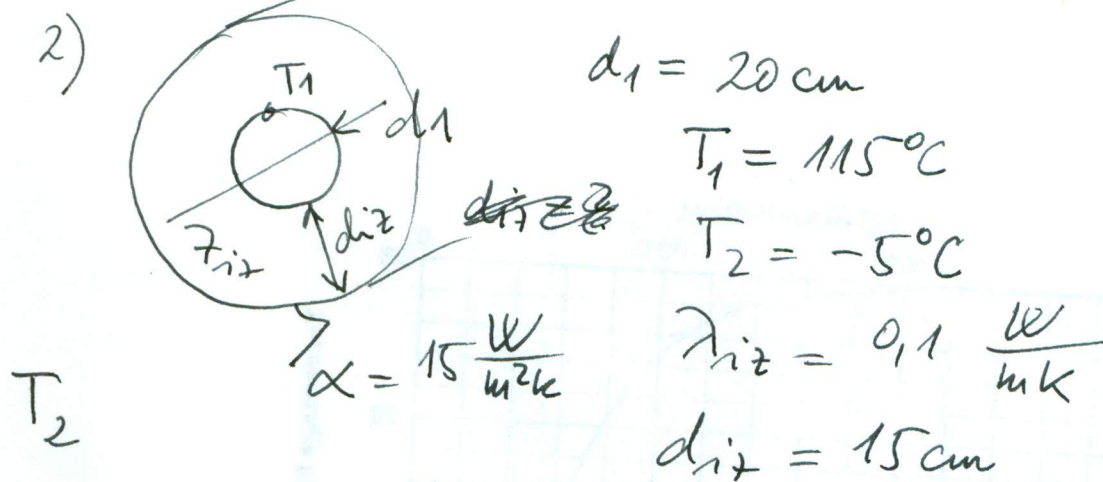 2)
T1
d1
diz
λiz
α = 15 W/m²K
T2
d1 = 20 cm
T1 = 115°C
T2 = -5°C
λiz = 0,1 W/mK
diz = 15 cm